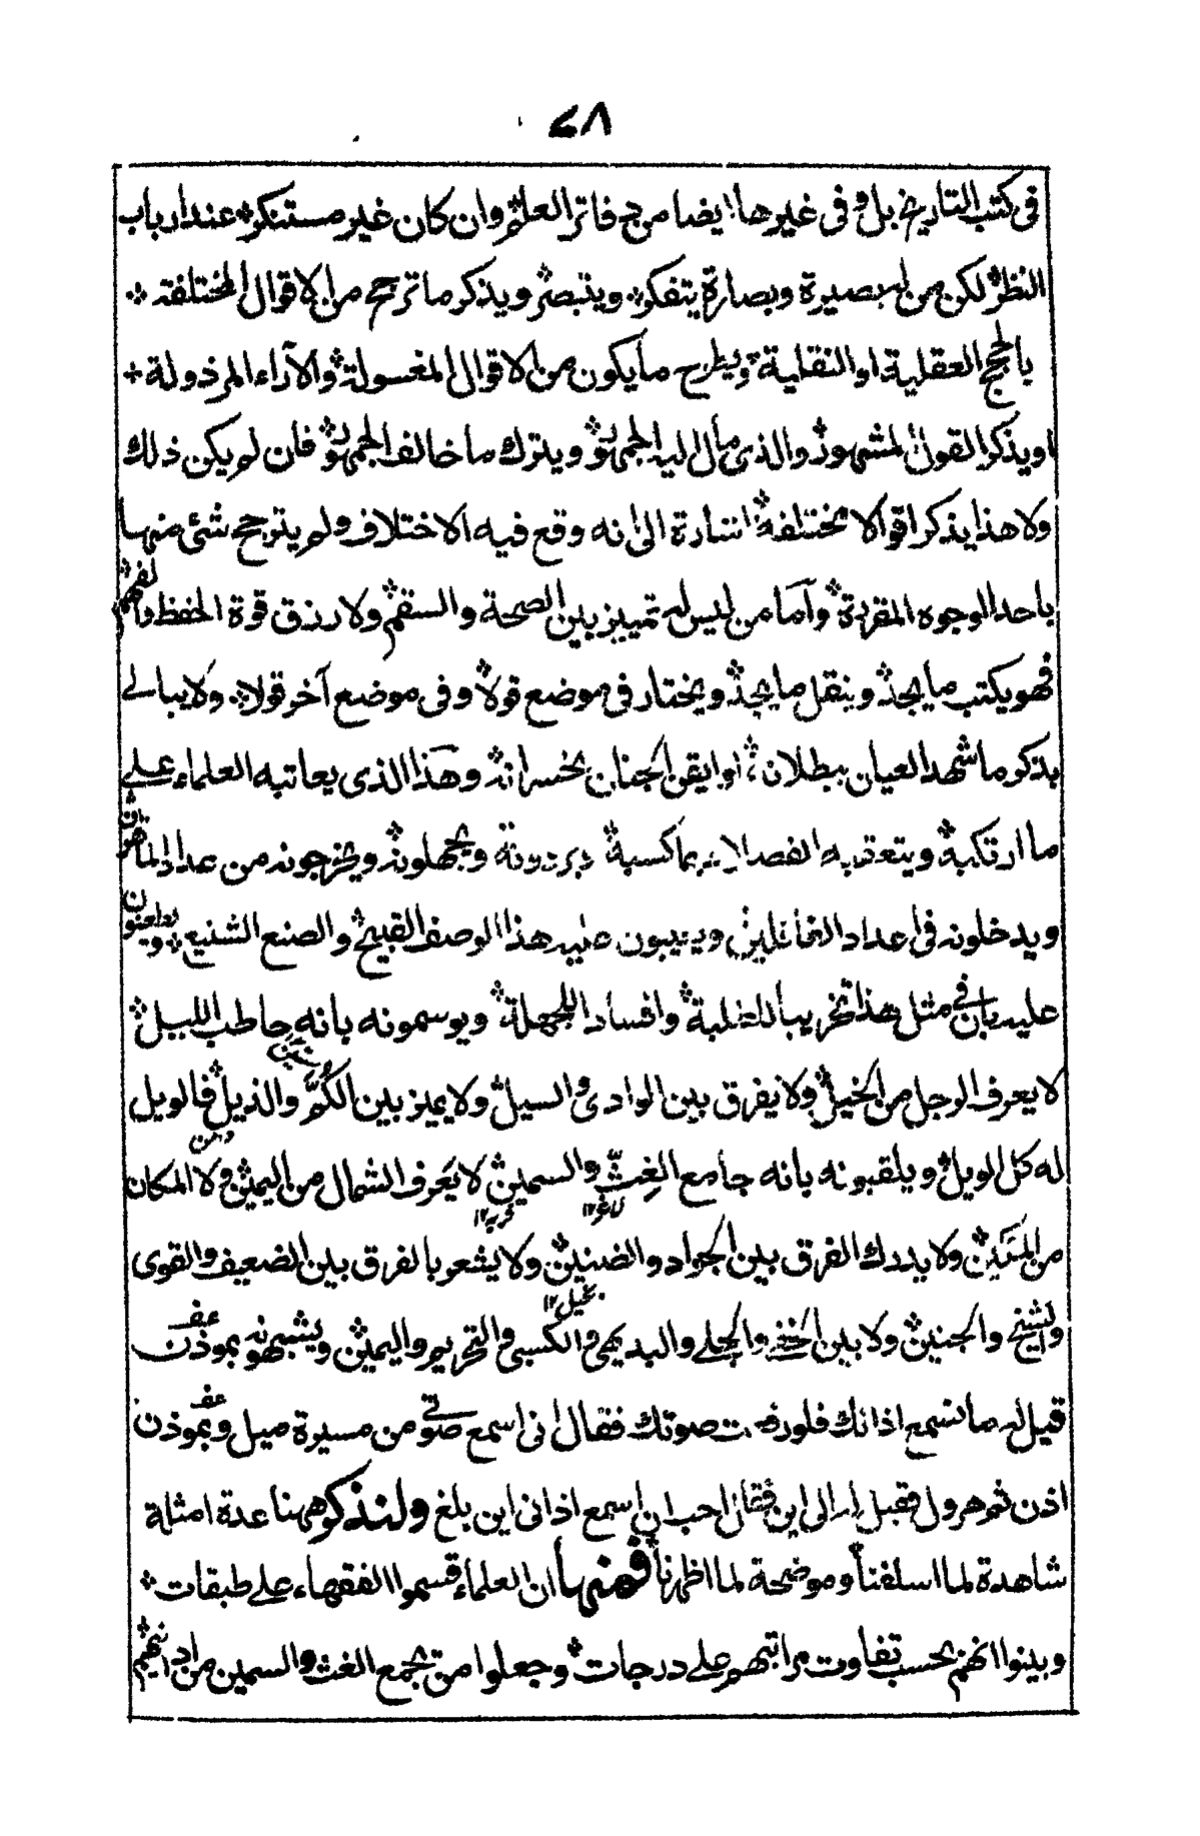 ٧٨
فى كتب التاريخ بل وفى غيرها ايضا من دفاتر العلم وان كان غير مستنكر عند ارباب
النظر لكن من له بصيرة وبصارة يتفكر ويتبصر ويذكر ما ترجح من الاقوال المختلفة
بالحجج العقلية او النقلية ويطرح ما يكون من الاقوال المغسولة والآراء المرذولة
او يذكر القول المشهور والذى مال اليه الجمهور ويترك ما خالف الجمهور فان لم يكن ذلك
ولا هذا يذكر اقوالا مختلفة اشارة الى انه وقع فيه الاختلاف ولم يترجح شئ منها
باحد الوجوه المقررة وآما من ليس له تمييز بين الصحة والسقم ولا رزق قوة الحفظ والفهم
فهو يكتب ما يجد وينقل ما يجد ويختار فى موضع قولا وفى موضع آخر قولا ولا يبالے
بذكر ما شهد العيان ببطلانه او ايقن الجنان بخسرانه وهذا الذى يعاتبه العلماء علے
ما ارتكبه ويتعقبه الفضلاء بما كسبه ويجهلونه ويخرجونه من عداد
ويدخلونه فى اعداد الغافلين ويعيبون عليه هذا الوصف القبيح والصنع الشنيع ويطعنون
عليه بان فى مثل هذا تخريبا للطلبة وافسادا للجهلة ويوسمونه بانه حاطب الليل
لا يعرف الرجل من الخيل ولا يفرق بين الوادى والسيل ولا يميز بين الكُمّ والذيل فالويل
له كل الويل ويلقبونه بانه جامع الغِثّ والسمين لا يَعرف الشمال من اليمين ولا المكان
من المَكين ولا يدرك الفرق بين الجواد والضنين ولا يشعر بالفرق بين الضعيف والقوى
بخيل ١٢
والشيخ والجنين ولا بين الخفے والجلے والبديهى والكسبى والتحرير واليمين ويشبهونه بموذن
قيل له ما نسمع اذانك فلو رفعت صوتك فقال انى اسمع صوتے من مسيرة ميل وبموذن
اذن ثم هرول فقيل له الى اين فقال احب ان اسمع اذانى اين بلغ ولنذكر ههنا عدة امثلة
شاهدة لما اسلفنا وموضحة لما اظهرنا فمنها ان العلماء قسموا الفقهاء علے طبقات
وبينوا انهم بحسب تفاوت مراتبهم علے درجات وجعلوا من يجمع الغث والسمين من ادانيهم